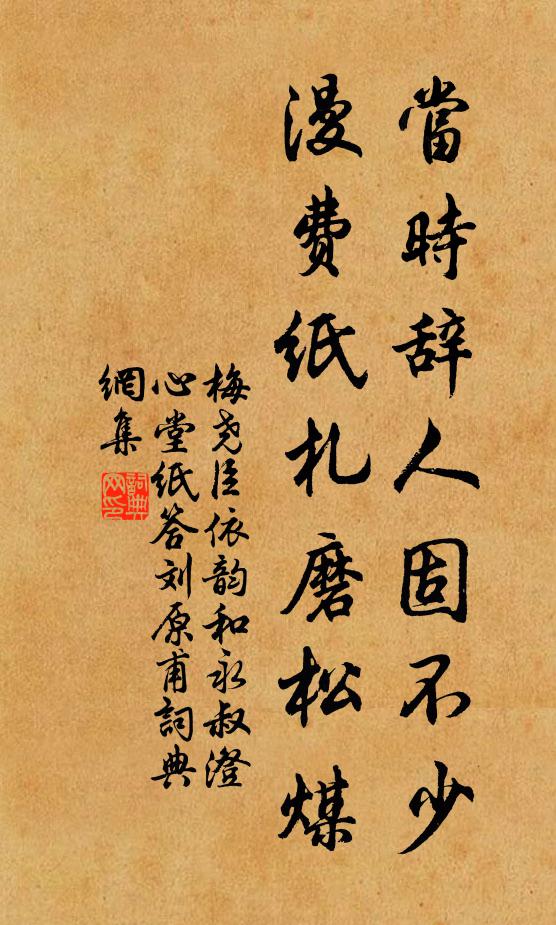 當時辞人固不少
漫費紙札磨松煤
梅尧臣依韵和永叔澄
心堂紙答刘原甫詞典
網集
詞典
网印